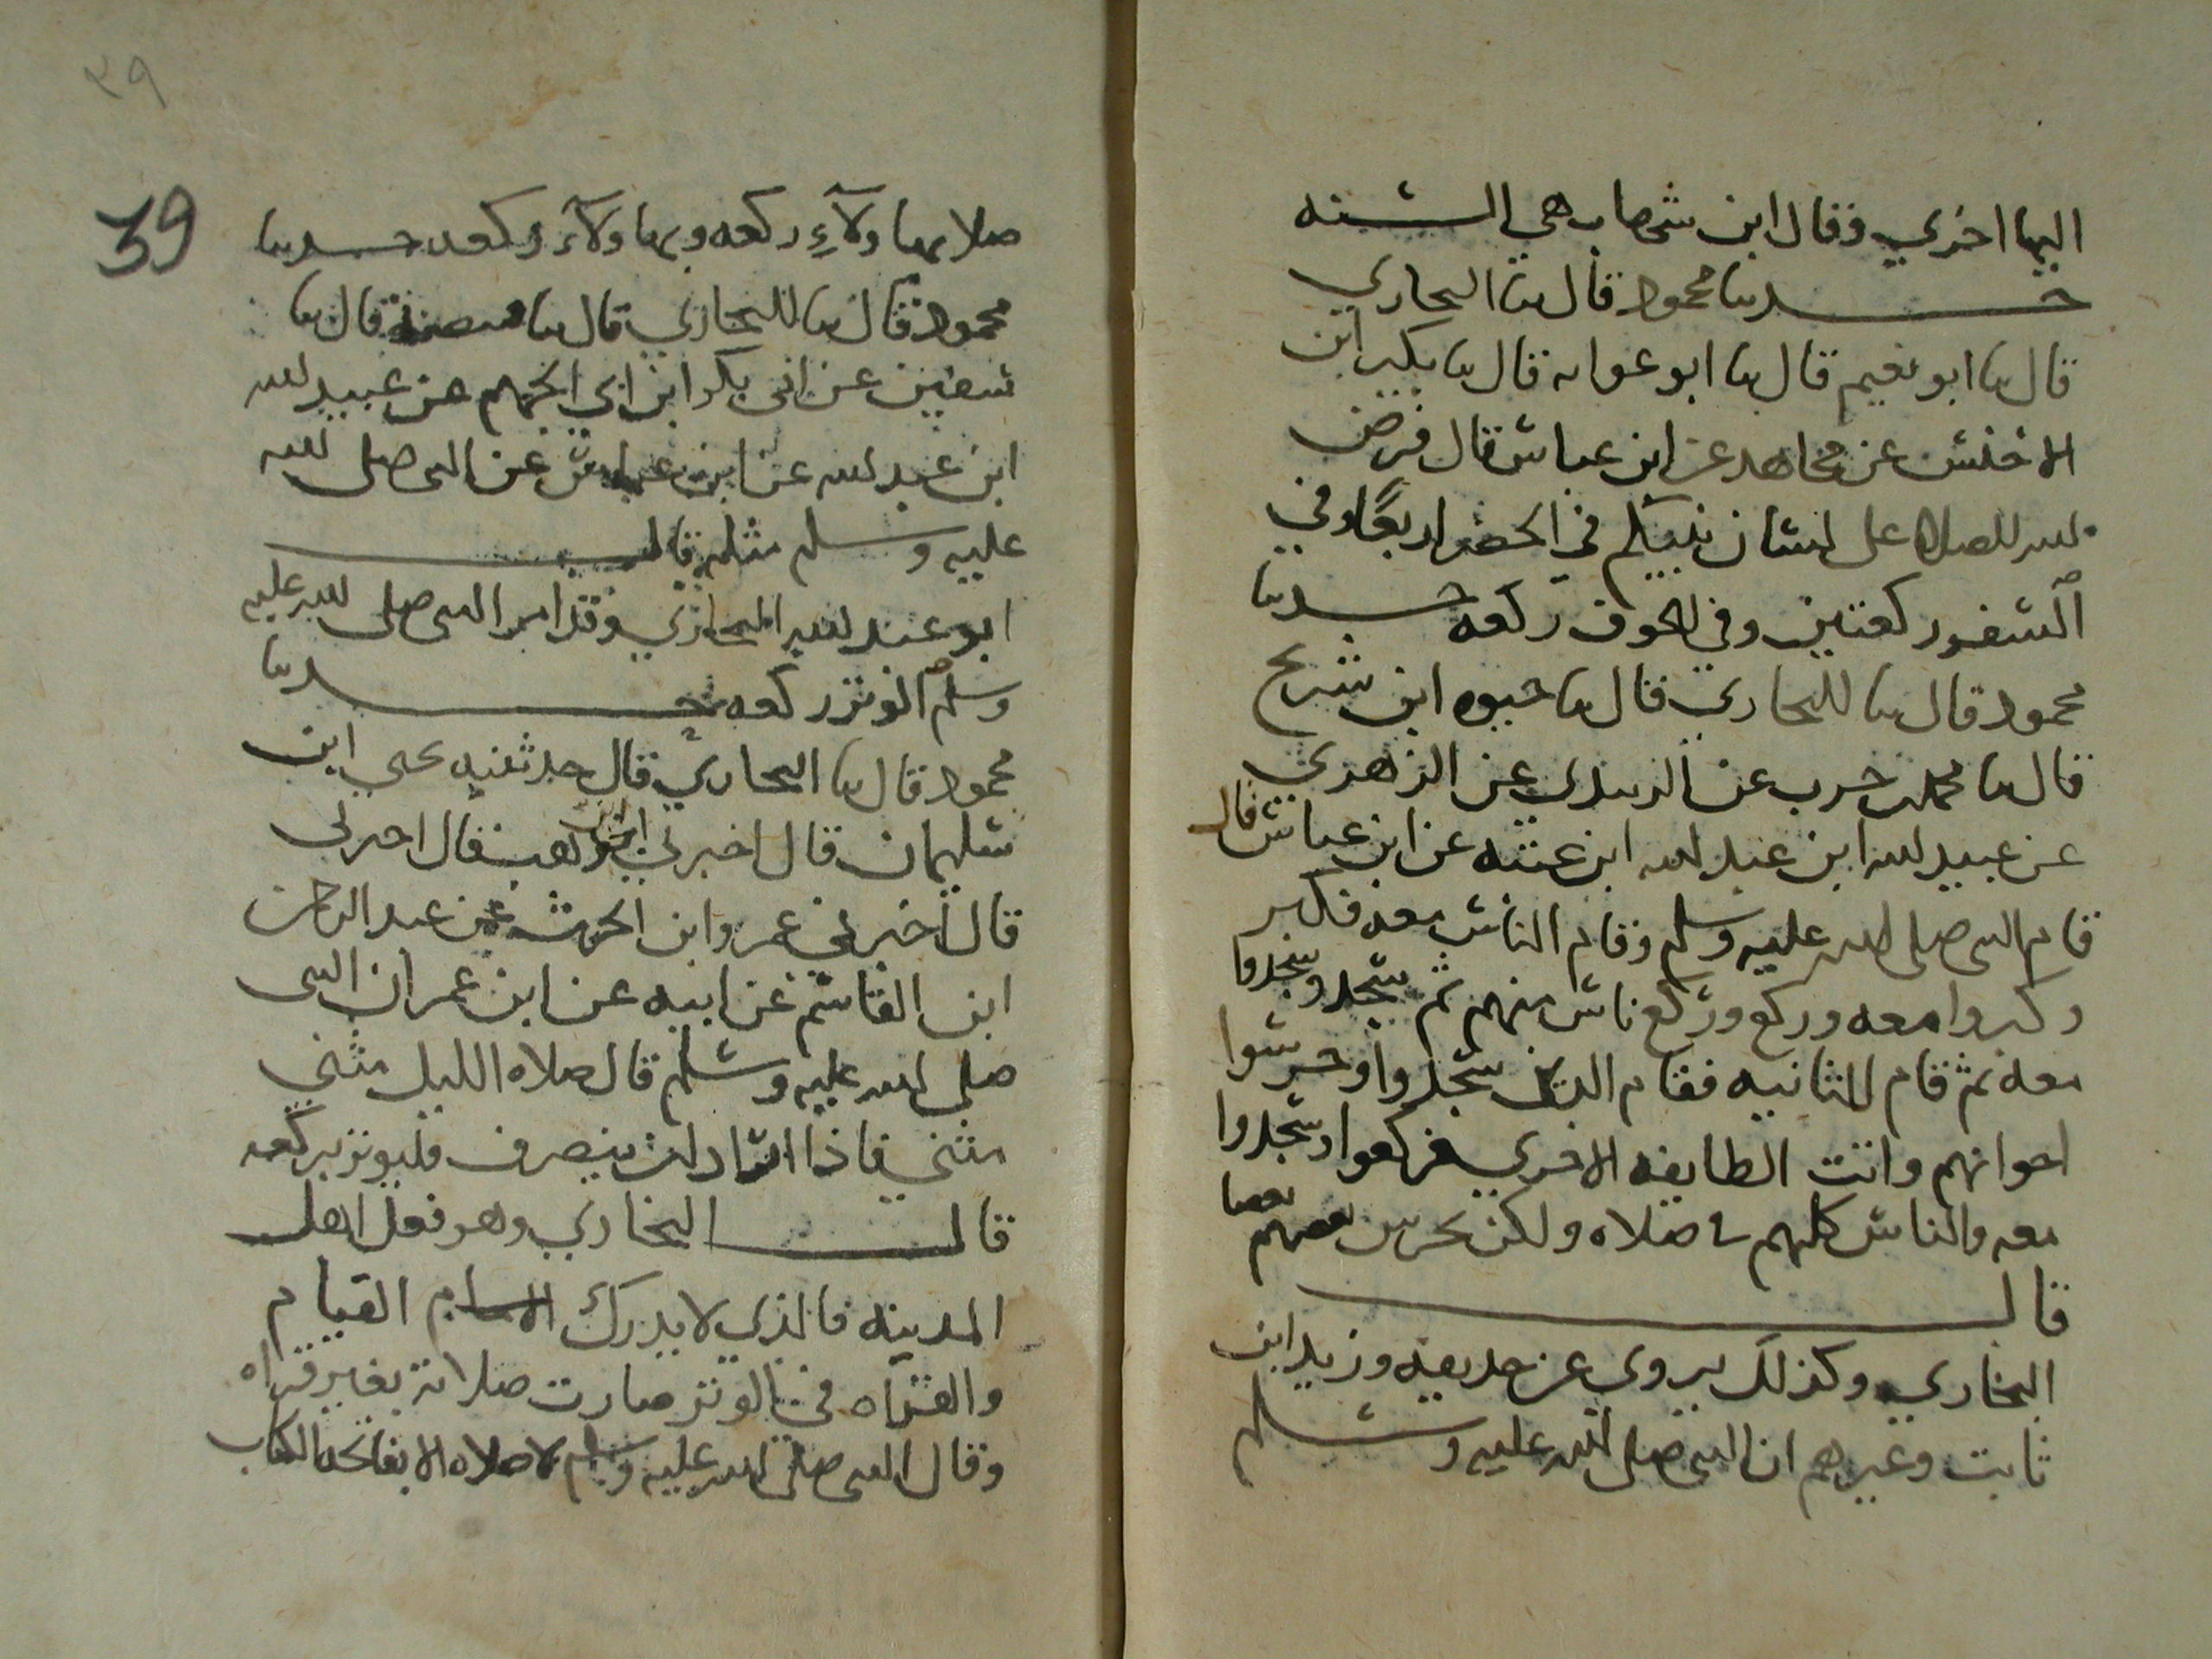 اليها اخري وقال ابن شهاب هي السنه
حدثنا محمود قال ثنا البخاري
قال ثنا ابو نعيم قال ثنا ابو عوانه قال ثنا بكير ابن
الاخنس عن مجاهد عن ابن عباس قال فرض
الله الصلاه على لسان نبيكم في الحضر اربعا وفي
السفر ركعتين وفي الخوف ركعه حدثنا
محمود قال ثنا البخاري قال ثنا حيوه ابن شريح
قال ثنا محمد بن حرب عن الزبيدي عن الزهري
عن عبيد الله ابن عبد الله ابن عتبه عن ابن عباس قال
قام النبي صلى الله عليه وسلم وقام الناس معه فكبر
وكبروا معه وركع وركع ناس منهم ثم سجد وسجدوا
معه ثم قام الثانيه فقام الذين سجدوا وحرسوا
اخوانهم واتت الطايفه الاخري فركعوا وسجدوا
معه والناس كلهم في صلاه ولكن يحرس بعضهم بعضا
قال
البخاري وكذلك يروي عن حذيفه وزيد ابن
ثابت وغيرهم ان النبي صلى الله عليه وسلم
٣٩
39
صلا بهاولآءِ ركعه وبهاولآء ركعه حدثنا
محمود قال ثنا البخاري قال ثنا قال ثنا
سفين عن ابي بكر ابن ابي الجهم عن عبيد الله
ابن عبد الله عن ابن عباس عن النبي صلى الله
عليه وسلم مثله قال
ابو عبد الله البخاري وقد امر النبي صلى الله عليه
وسلم الوتر ركعه حدثنا
محمود قال ثنا البخاري قال حدثنيه يحيي ابن
سليمان قال اخبرني ابن وهب قال اخبرني
قال اخبرني عمرو ابن الحرث عن عبد الرحمن
ابن القاسم عن ابيه عن ابن عمر ان النبي
صلي الله عليه وسلم قال صلاه الليل مثني
مثني فاذا اراد ان ينصرف فليوتر بركعه
قال البخاري وهو فعل اهل
المدينه فالذي لا يدرك الامام القيام
والقراه في الوتر صارت صلاته بغير قراه
وقال النبي صلى الله عليه وسلم لا صلاه الا بفاتحه الكتاب